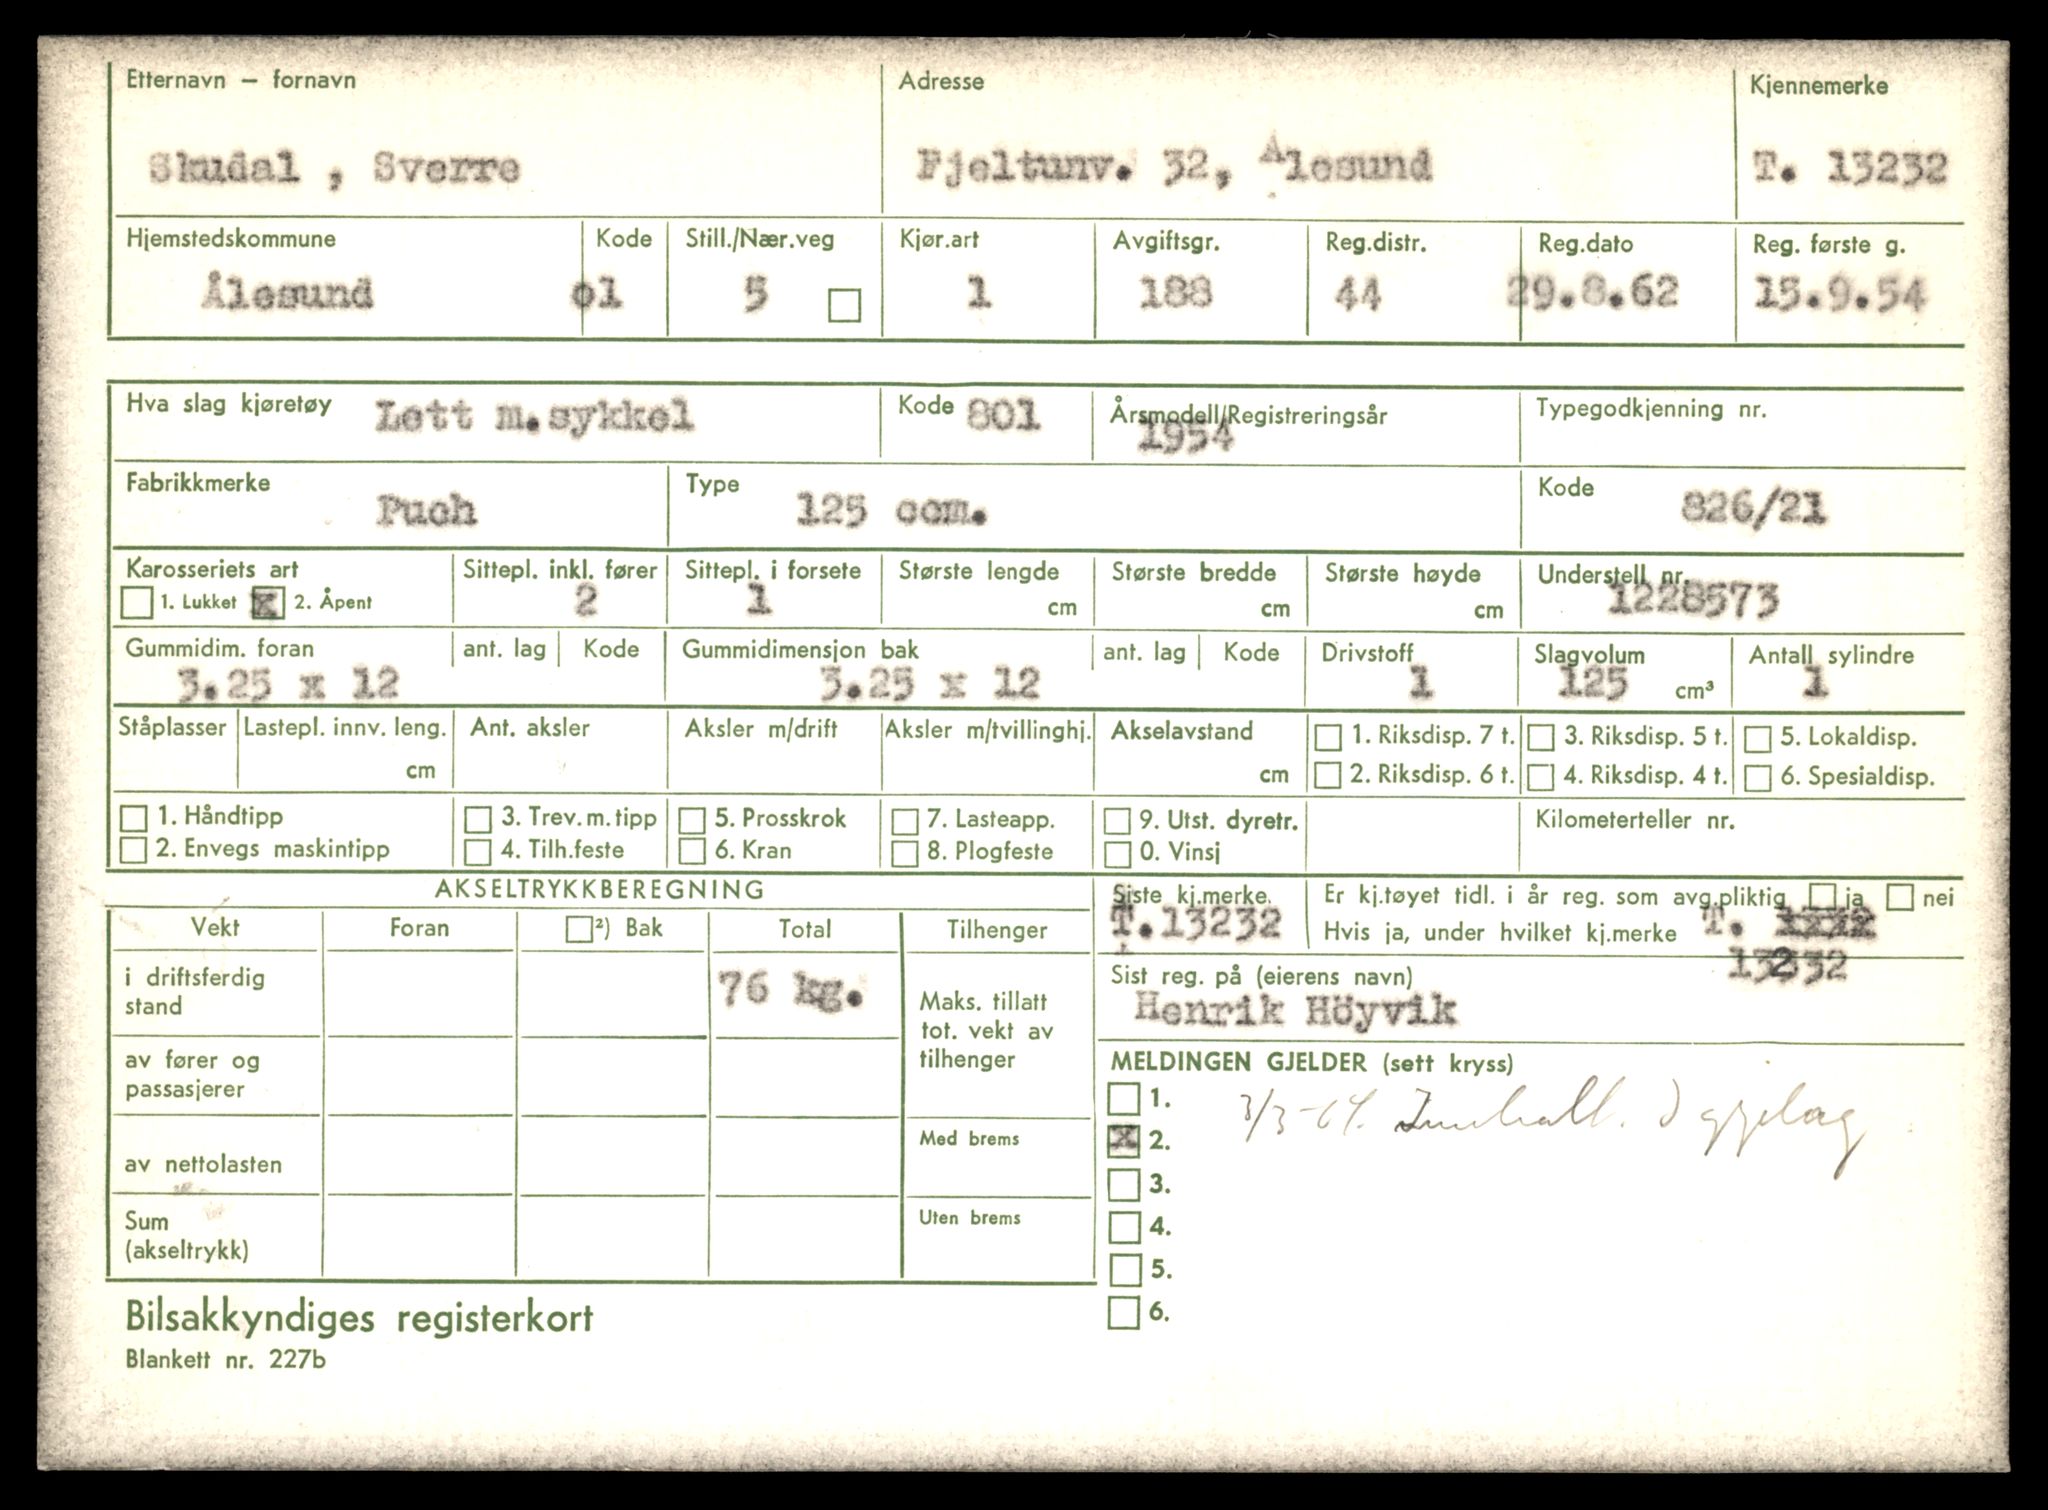 Etternavn — fornavn Adresse Kjennemerke
Skudal , Sverre Fjeltunv. 32, Ålesund T. 13232
Hjemstedskommune Kode Still./Nær.veg Kjør.art Avgiftsgr. Reg.distr. Reg.dato Reg. første g.
Ålesund 01 5 1 188 44 29.8.62 15.9.54
Hva slag kjøretøy Lett m.sykkel Kode 801 Årsmodell/Registreringsår Typegodkjenning nr.
1954
Fabrikkmerke Type Kode
Puch 125 ccm. 826/21
Karosseriets art Sittepl. inkl. fører Sittepl. i forsete Største lengde Største bredde Største høyde Understell nr.
1. Lukket x 2. Åpent 2 1 cm cm cm 1228573
Gummidim. foran ant. lag Kode Gummidimensjon bak ant. lag Kode Drivstoff Slagvolum Antall sylindre
3.25 x 12 3.25 x 12 1 125 cm³ 1
Ståplasser Lastepl. innv. leng. Ant. aksler Aksler m/drift Aksler m/tvillinghj. Akselavstand 1. Riksdisp. 7 t. 3. Riksdisp. 5 t. 5. Lokaldisp.
cm cm 2. Riksdisp. 6 t. 4. Riksdisp. 4 t. 6. Spesialdisp.
1. Håndtipp 3. Trev. m. tipp 5. Prosskrok 7. Lasteapp. 9. Utst. dyretr. Kilometerteller nr.
2. Envegs maskintipp 4. Tilh.feste 6. Kran 8. Plogfeste 0. Vinsj
AKSELTRYKKBEREGNING Siste kj.merke. Er kj.tøyet tidl. i år reg. som avg.pliktig ja nei
Vekt Foran ²) Bak Total Tilhenger T.13232 Hvis ja, under hvilket kj.merke T.
13232
i driftsferdig stand 76 kg. Maks. tillatt tot. vekt av tilhenger Sist reg. på (eierens navn)
Henrik Höyvik
av fører og passasjerer MELDINGEN GJELDER (sett kryss)
1. 3/3-64.
Med brems x 2.
av nettolasten 3.
Sum (akseltrykk) Uten brems 4.
5.
6.
Bilsakkyndiges registerkort
Blankett nr. 227b